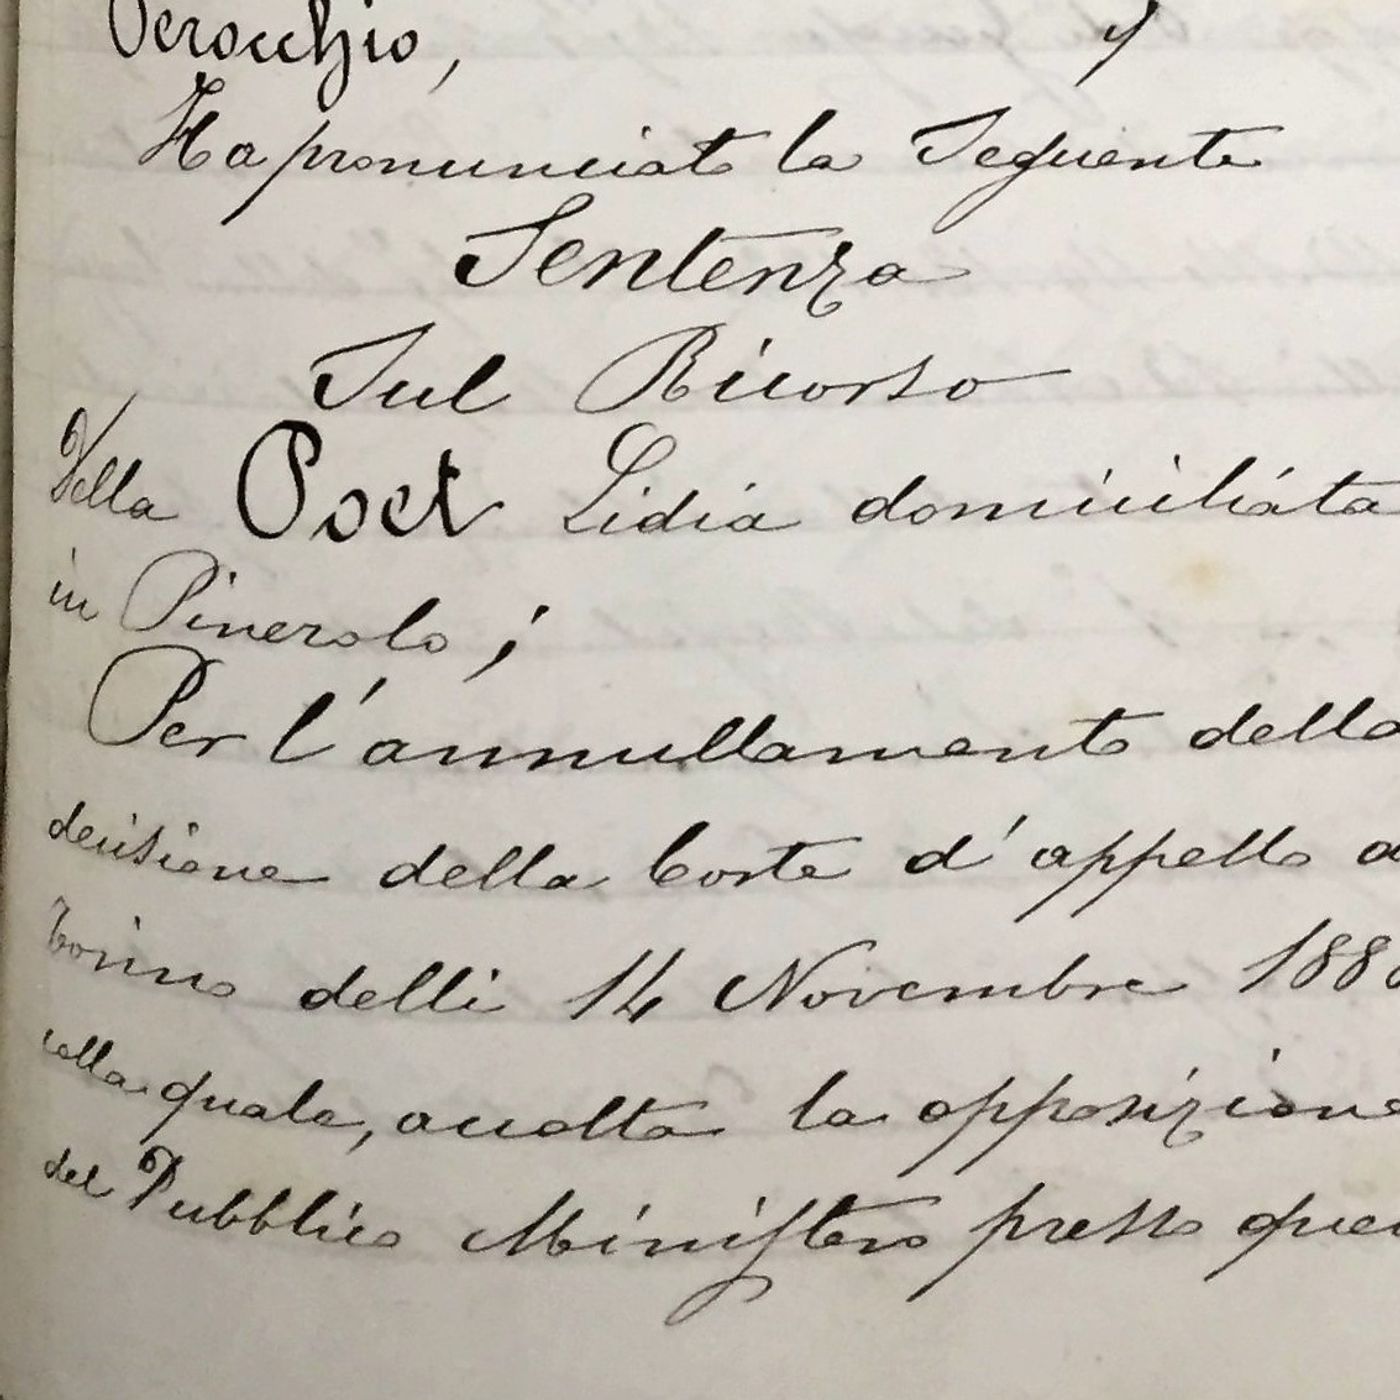 Verocchio,
Ha pronunciato la Seguente
Sentenza
Sul Ricorso
Della Poet Lidia domiciliata
in Pinerolo;
Per l'annullamento della
decisione della Corte d'appello
Torino delli 14 Novembre 188
colla quale, accolta la opposizione
del Pubblico Ministero presso